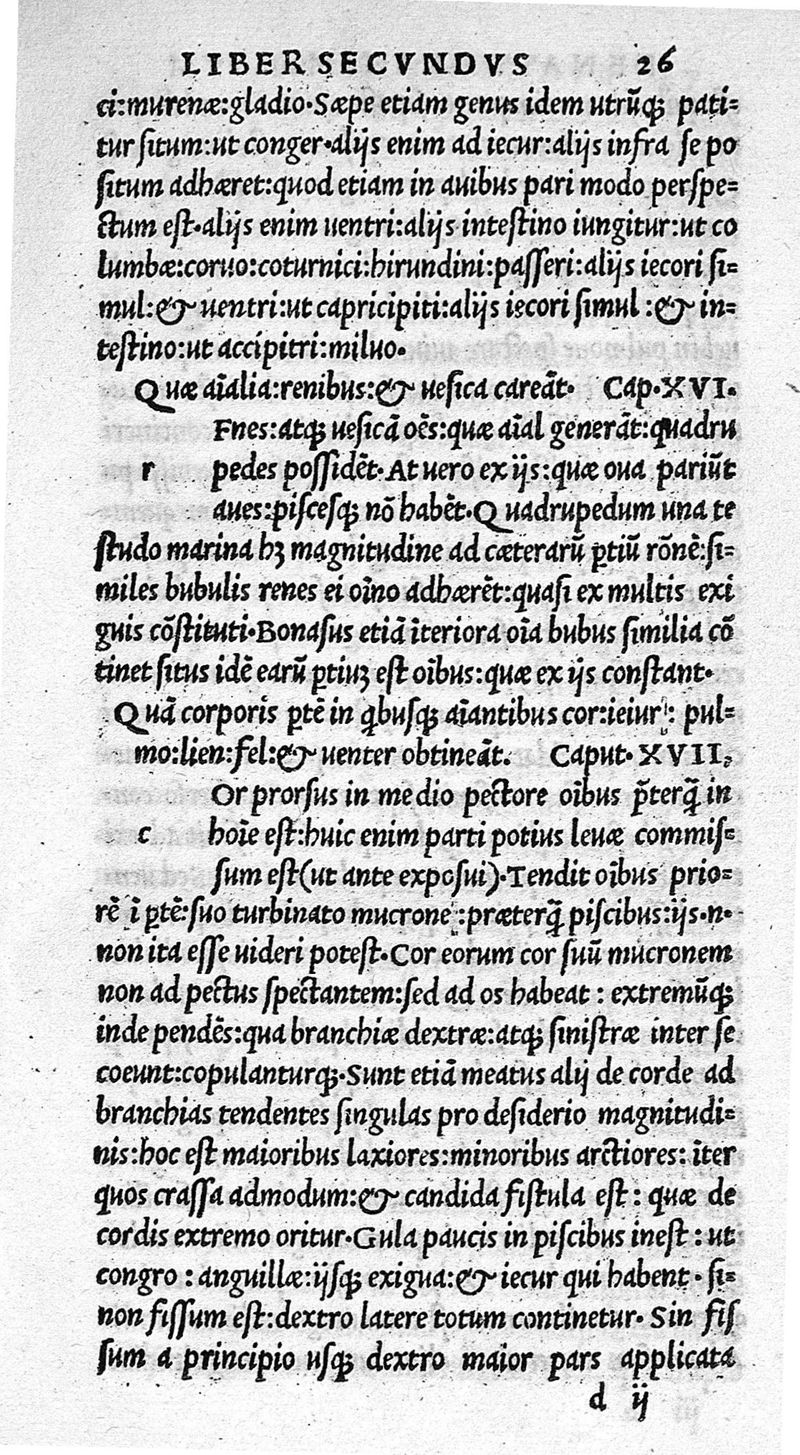 LIBER SECVNDVS 26
ci:murenæ:gladio·Sæpe etiam genus idem utrūq; pati=
tur ſitum:ut conger·alijs enim ad iecur:alijs infra ſe po
ſitum adhæret:quod etiam in auibus pari modo perſpe=
ctum eſt·alijs enim uentri:alijs inteſtino iungitur:ut co
lumbæ:coruo:coturnici:hirundini:paſſeri:alijs iecori ſi=
mul:& uentri:ut capricipiti:alijs iecori ſimul :& in=
teſtino:ut accipitri:miluo·
Quæ aīalia:renibus:& ueſica careāt· Cap·XVI.
Fnes:atq; ueſicā oēs:quæ aīal generāt:quadru
r pedes poſſidēt·At uero ex ijs:quæ oua pariūt
aues:piſceſq; nō habēt·Quadrupedum una te
ſtudo marina hꝫ magnitudine ad cæterarū ꝑtiū rōnē:ſi=
miles bubulis renes ei oīno adhærēt:quaſi ex multis exi
guis cōſtituti·Bonaſus etiā īteriora oīa bubus ſimilia cō
tinet ſitus idē earū ꝑtiuꝫ eſt oībus:quæ ex ijs conſtant·
Quā corporis ꝑtē in qbuſq; aīantibus cor:ieiur: pul=
mo:lien:fel:& uenter obtineāt. Caput· XVII.
Or prorſus in medio pectore oībus p̄terq̄ in
c hoīe eſt:huic enim parti potius leuæ commiſ=
ſum eſt(ut ante expoſui)·Tendit oībus prio=
rē ī ꝑtē:ſuo turbinato mucrone :præterq̄ piſcibus:ijs·n·
non ita eſſe uideri poteſt·Cor eorum cor ſuū mucronem
non ad pectus ſpectantem:ſed ad os habeat : extremūq;
inde pendēs:qua branchiæ dextræ:atq; ſiniſtræ inter ſe
coeunt:copulanturq;·Sunt etiā meatus alij de corde ad
branchias tendentes ſingulas pro deſiderio magnitudi=
nis:hoc eſt maioribus laxiores:minoribus arctiores: īter
quos craſſa admodum:& candida fiſtula eſt : quæ de
cordis extremo oritur·Gula paucis in piſcibus ineſt : ut
congro : anguillæ:ijſq; exigua:& iecur qui habent · ſi=
non fiſſum eſt:dextro latere totum continetur· Sin fiſ
ſum a principio uſq; dextro maior pars applicata
d ij